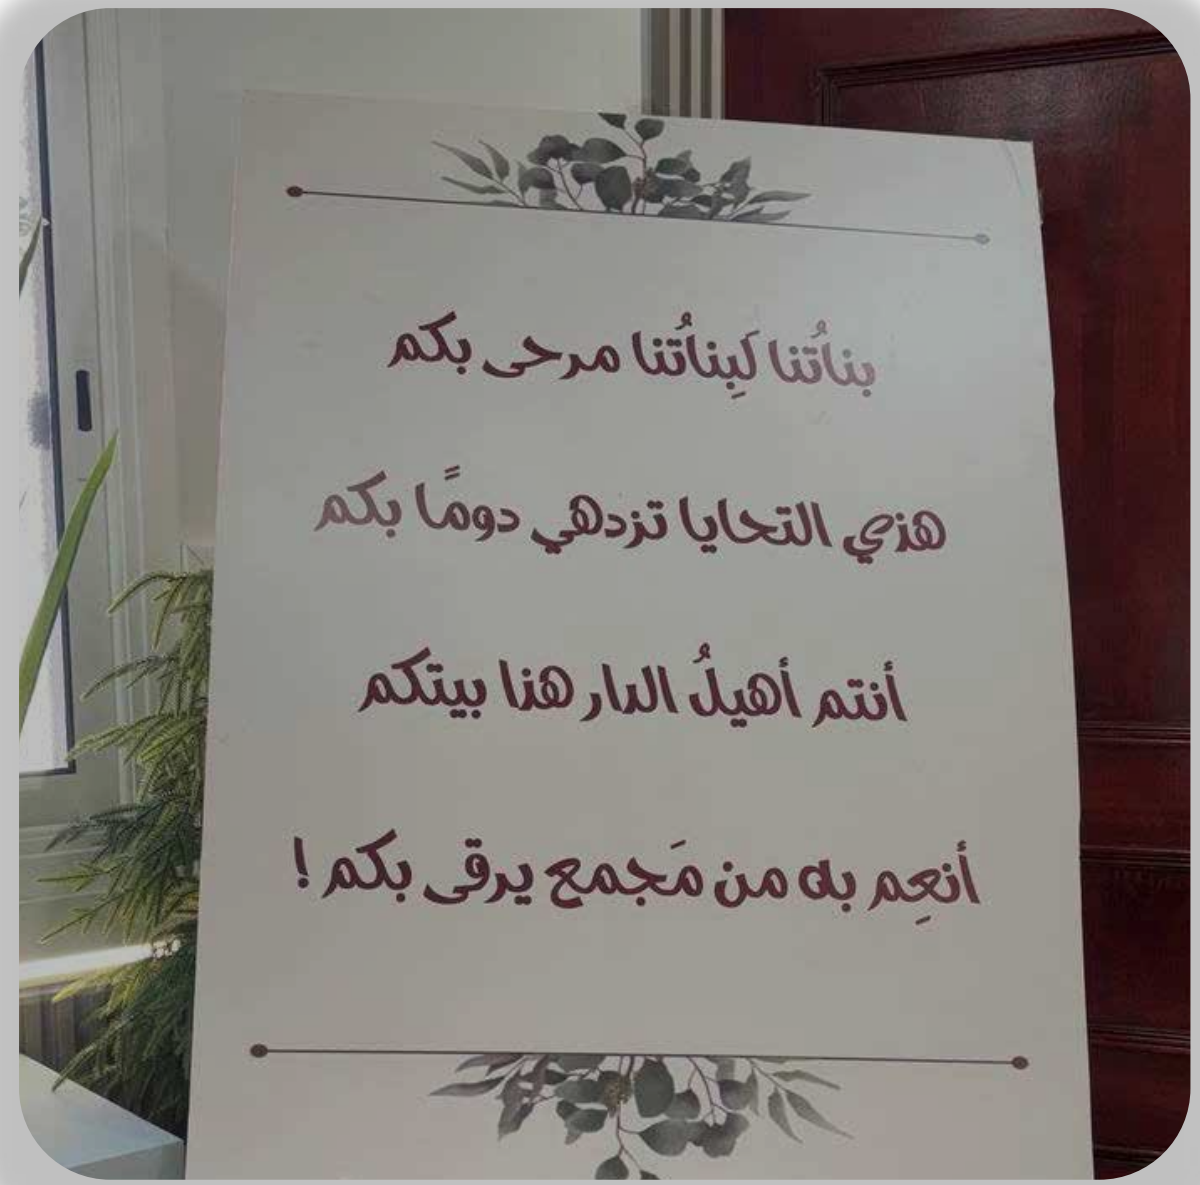 بناتُنا لَبِناتُنا مرحى بكم
هذي التحايا تزدهي دومًا بكم
أنتم أهيلُ الدار هنا بيتكم
أنعِم به من مَجمع يرقى بكم !